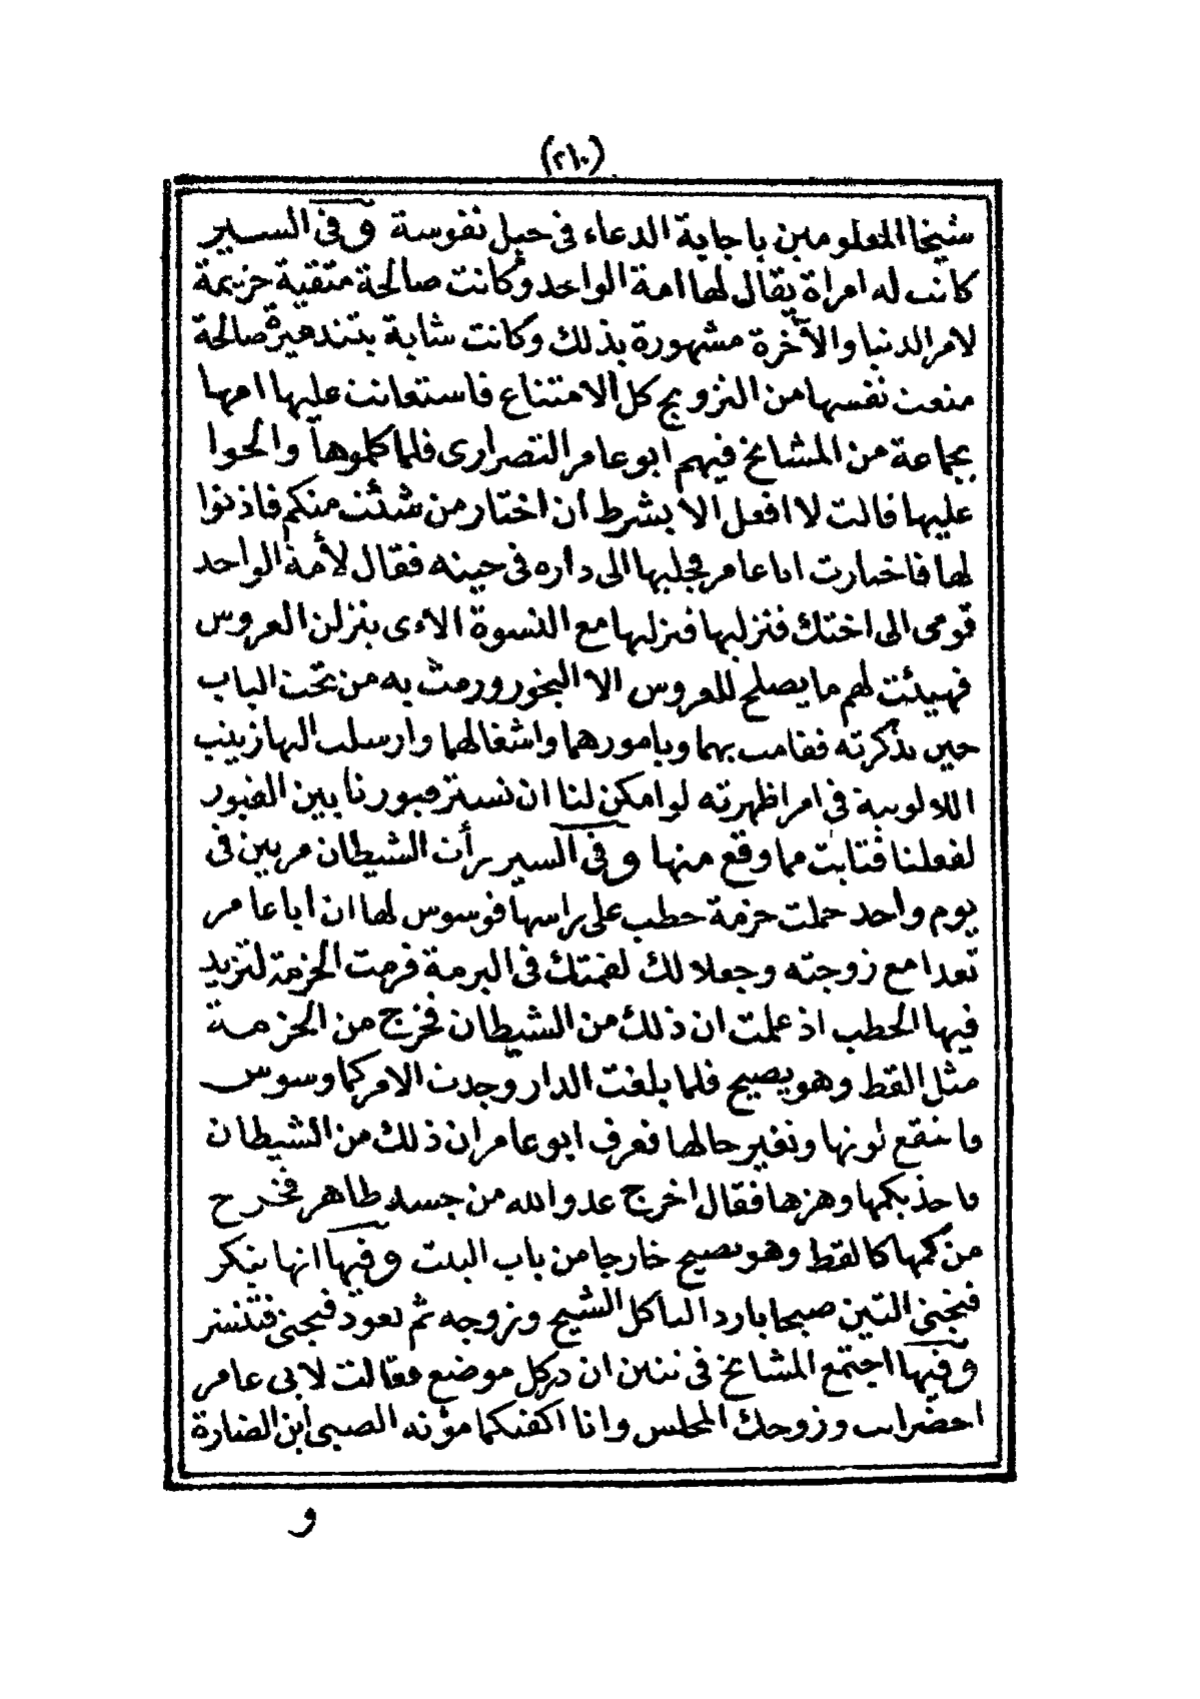 (٢١٠)
شيخا المعلومين باجابة الدعاء فى جبل نفوسة وفى السير
كانت له امراة يقال لها امة الواحد وكانت صالحة متقية حزيمة
لامر الدنيا والآخرة مشهورة بذلك وكانت شابة بتندميرة صالحة
منعت نفسها من التزويج كل الامتناع فاستعانت عليها امها
بجماعة من المشايخ فيهم ابو عامر التصرارى فلما كلموها والحوا
عليها قالت لا افعل الا بشرط ان اختار من شئت منكم فاذنوا
لها فاختارت ابا عامر فجلبها الى داره فى حينه فقال لأمة الواحد
قومى الى اختك فنزليها فنزلها مع النسوة الاءى ينزلن العروس
فهيئت لهم ما يصلح للعروس الا البخور ورمت به من تحت الباب
حين تذكرته فقامت بهما وبامورهما واشغالهما وارسلت اليها زينب
اللالوتية فى امر اظهرته لو امكن لنا ان نستر قبورنا بين القبور
لفعلنا فتابت مما وقع منها وفى السير رأت الشيطان مريين فى
يوم واحد حملت حزمة حطب على راسها فوسوس لها ان ابا عامر
تعدا مع زوجته وجعلا لك لقمتك فى البرمة فرمت الحزمة لتزيد
فيها الحطب اذ علمت ان ذلك من الشيطان فخرج من الحزمة
مثل القط وهو يصيح فلما بلغت الدار وجدت الامر كما وسوس
فانتقع لونها وتغير حالها فعرف ابو عامر ان ذلك من الشيطان
فاخذ بكمها وهزها فقال اخرج عدو الله من جسد طاهر فخرج
من كمها كالقط وهو يصيح خارجا من باب البيت وفيها انها تبكر
فتجنى التين صبحا باردا لياكل الشيخ وزوجه ثم تعود فتجنى فتنشر
وفيها اجتمع المشايخ فى تنين ان دركل موضع فقالت لابى عامر
احضر انت وزوجك المجلس وانا اكفيكما مؤنة الصبى ابن الضارة
و